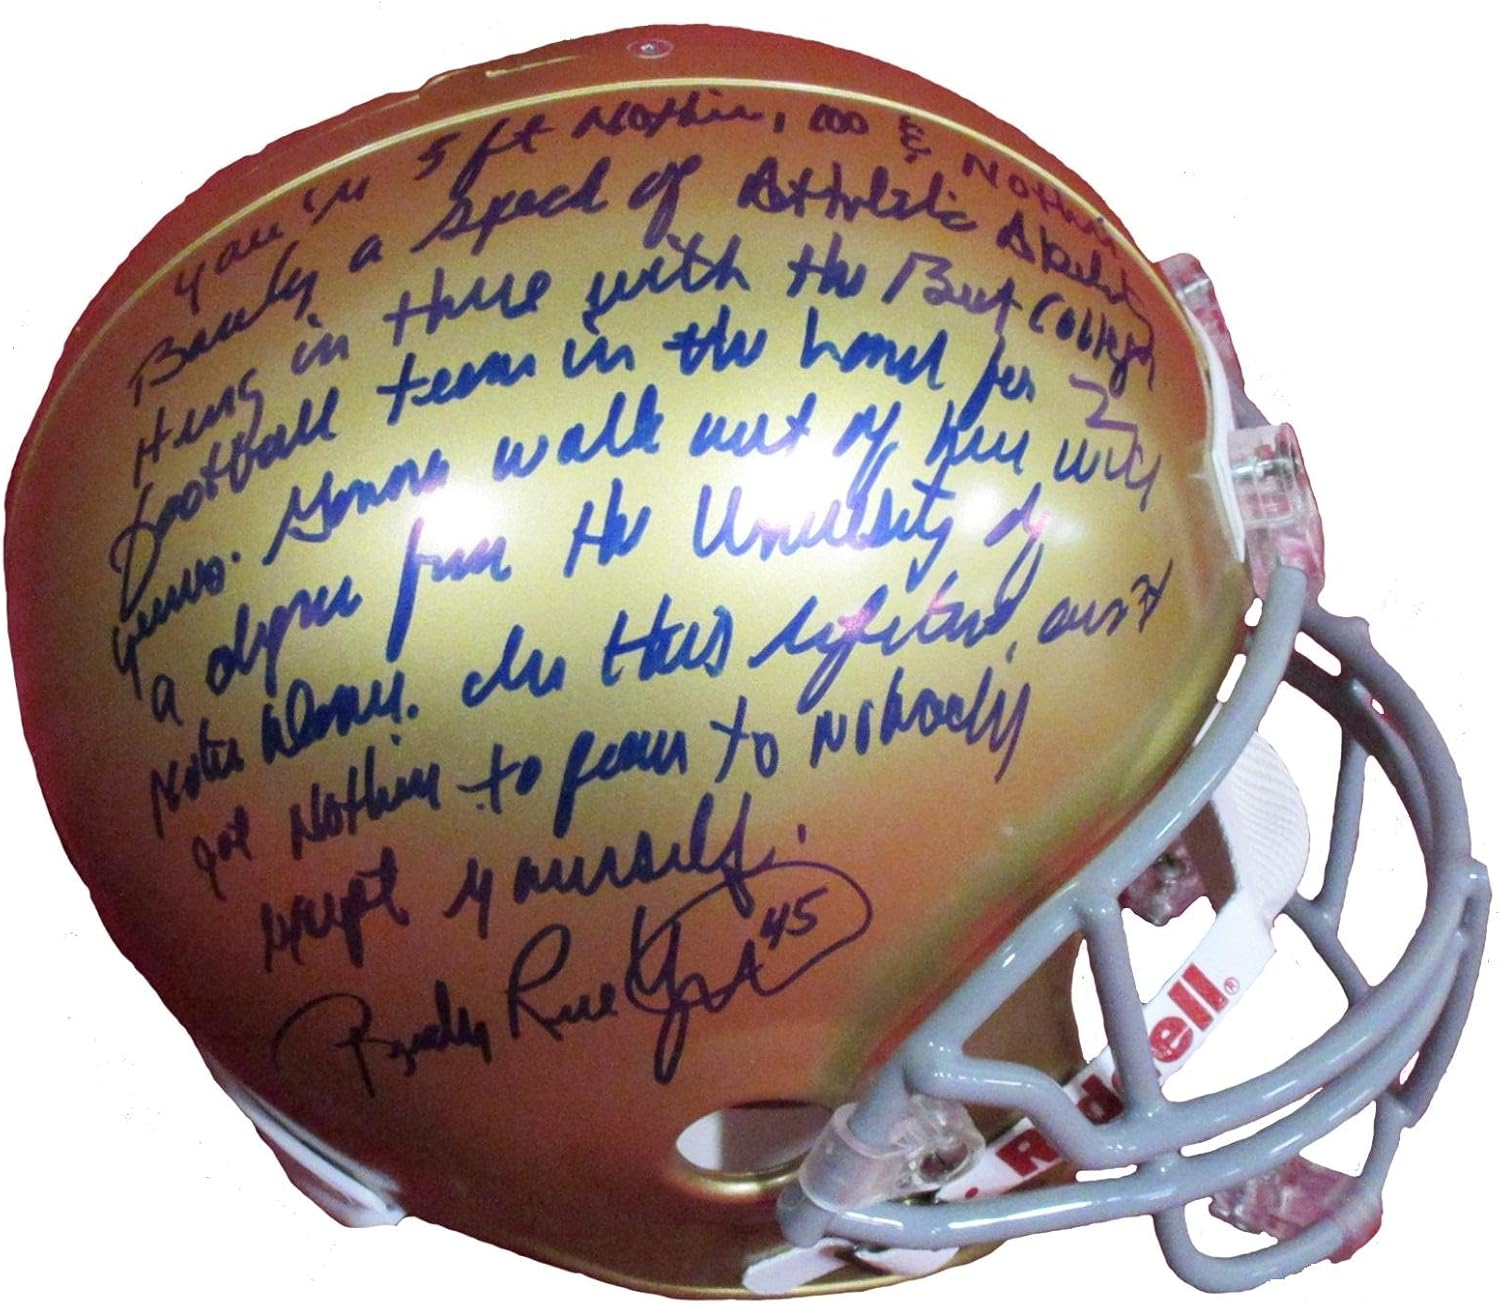 You're 5 ft Nothin, 100 & Nothin
Barely a speck of Athletic Ability
Hung in there with the Best College
football team in the Land for 2
years. Gonna walk out of here with
a degree from the University of
Notre Dame. In this lifetime, don't
got Nothin to prove to Nobody
except yourself.
Rudy Ruettiger 45
Riddell®